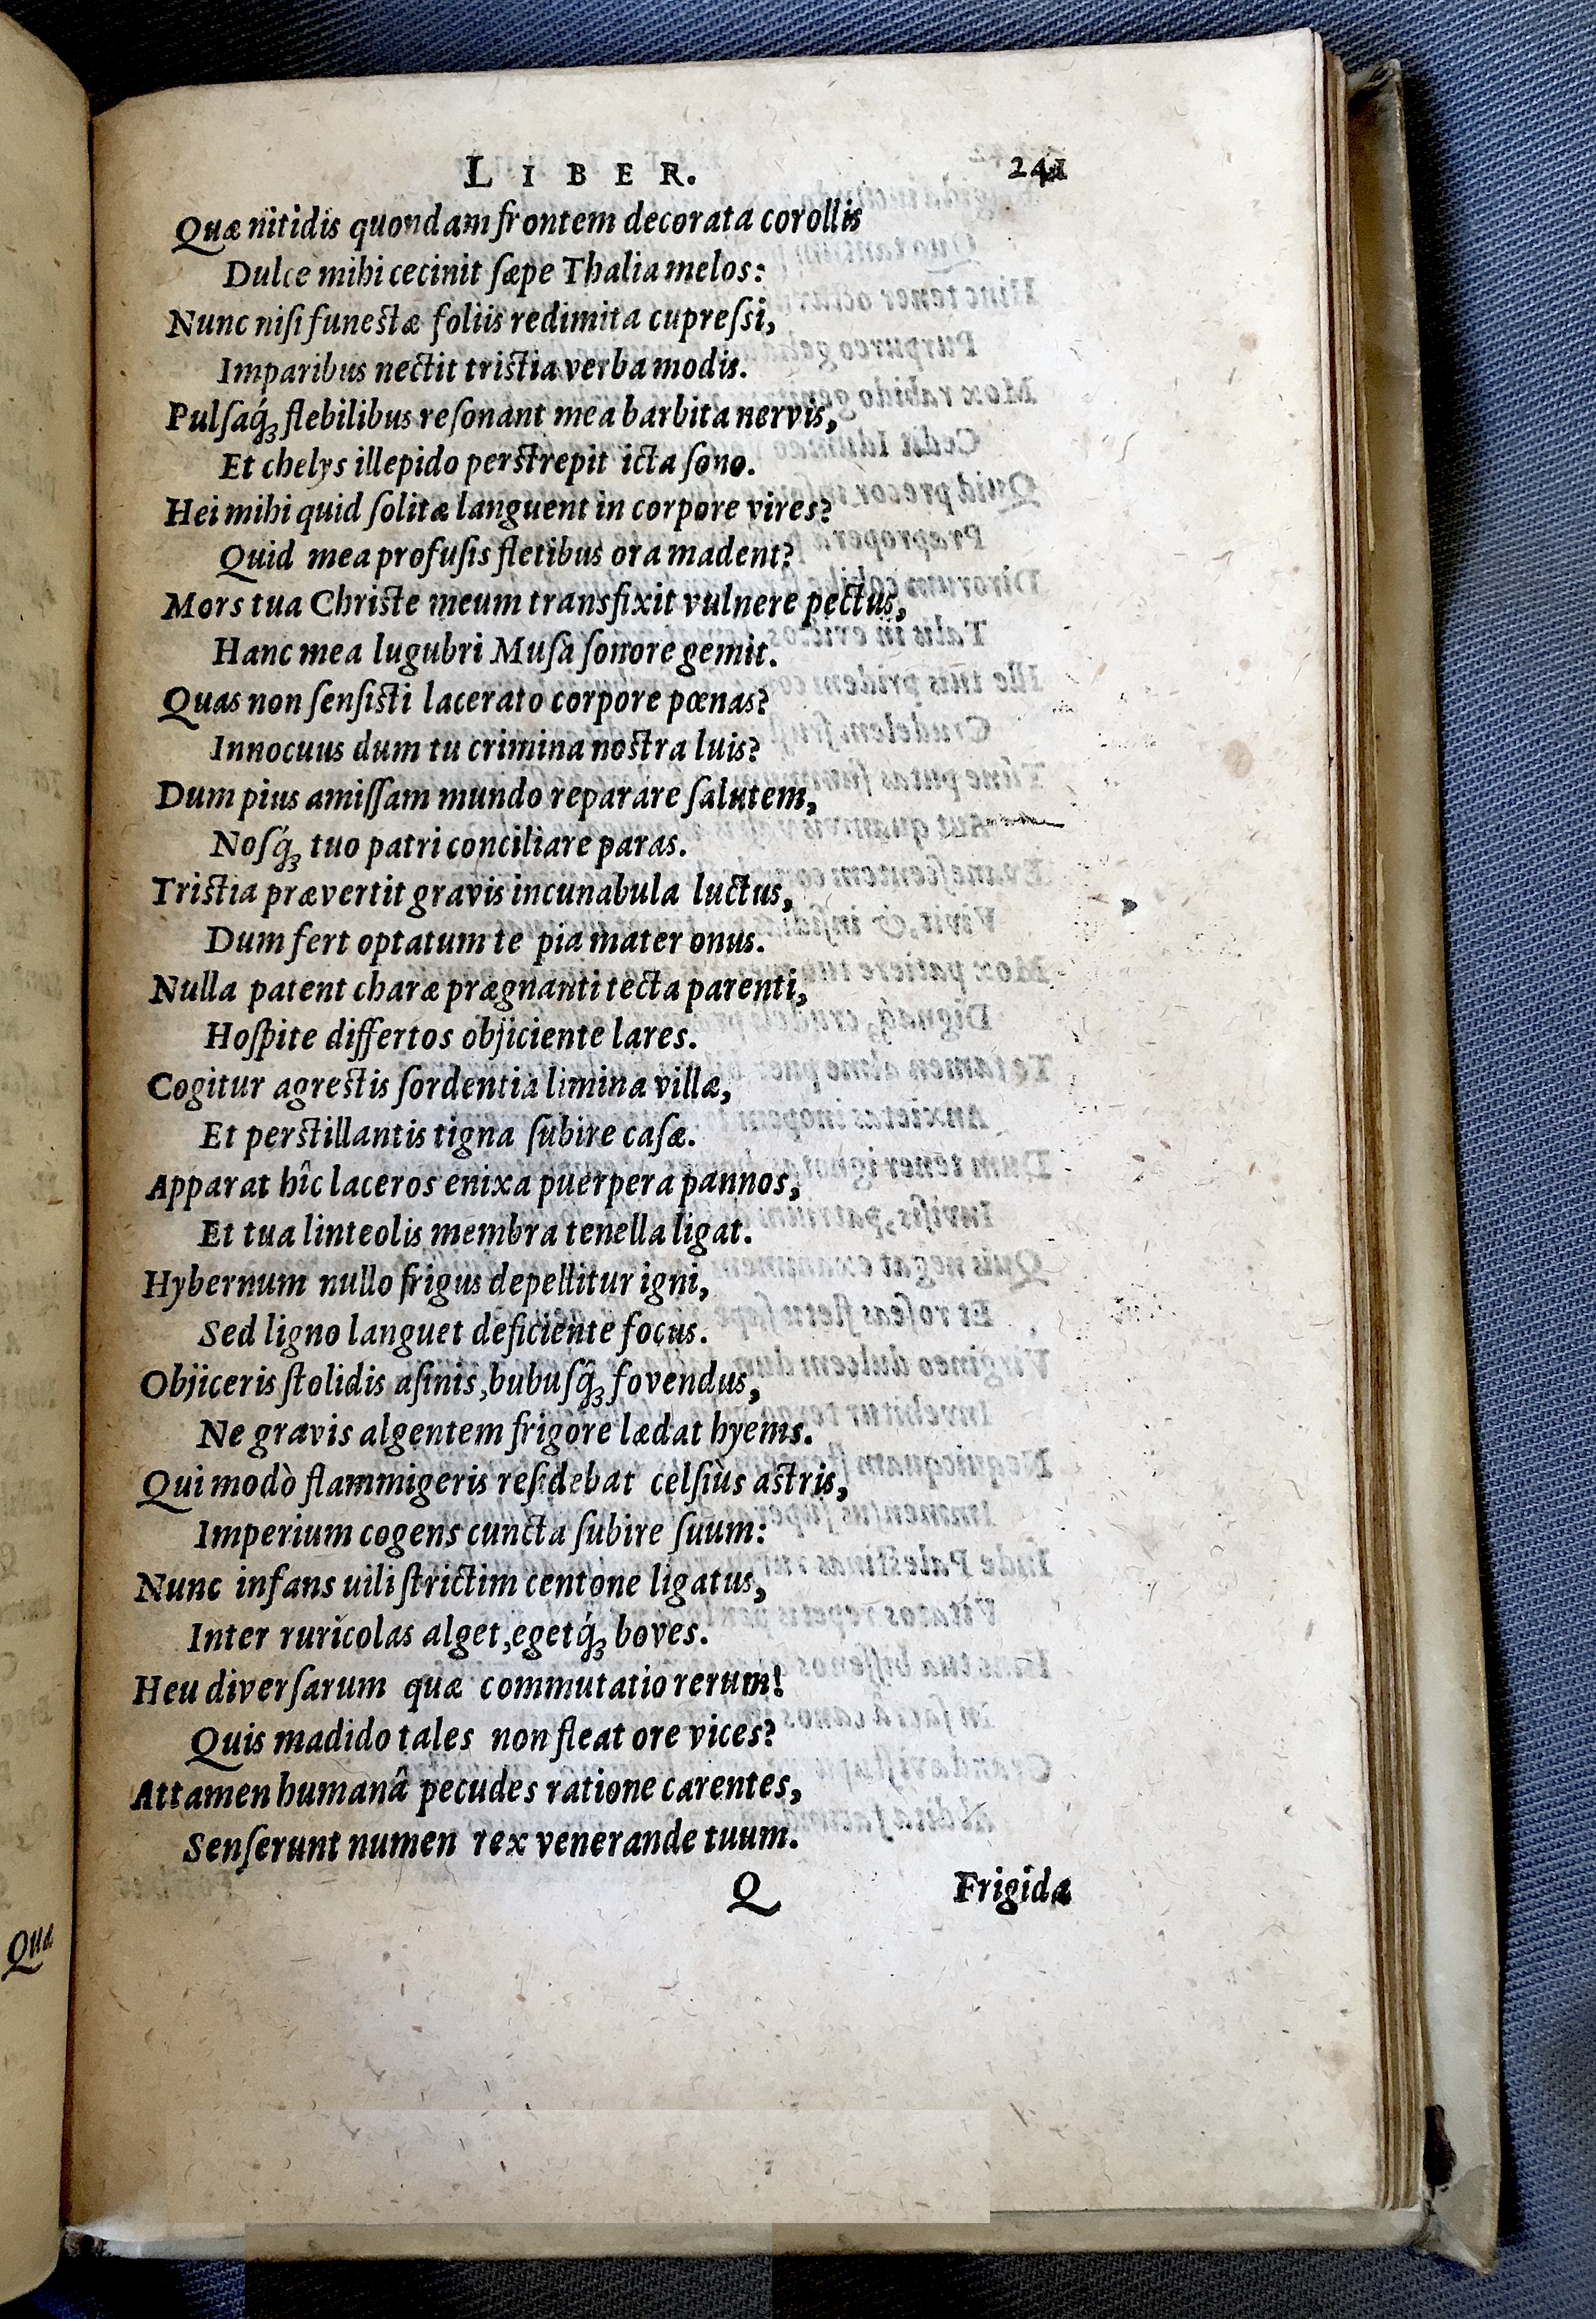 LIBER. 241
Quæ nitidis quondam frontem decorata corollis
Dulce mihi cecinit ſæpe Thalia melos:
Nunc niſi funeſtæ foliis redimita cupreſſi,
Imparibus nectit triſtia verba modis.
Pulſaq́ꝫ flebilibus reſonant mea barbita nervis,
Et chelys illepido perſtrepit icta ſono.
Hei mihi quid ſolitæ languent in corpore vires?
Quid mea profuſis fletibus ora madent?
Mors tua Chriſte meum transfixit vulnere pectus,
Hanc mea lugubri Muſa ſonore gemit.
Quas non ſenſiſti lacerato corpore pœnas?
Innocuus dum tu crimina noſtra luis?
Dum pius amiſſam mundo reparare ſalutem,
Noſq́ꝫ tuo patri conciliare paras.
Triſtia prævertit gravis incunabula luctus,
Dum fert optatum te pia mater onus.
Nulla patent charæ prægnanti tecta parenti,
Hoſpite differtos objiciente lares.
Cogitur agreſtis ſordentia limina villæ,
Et perſtillantis tigna ſubire caſæ.
Apparat hîc laceros enixa puerpera pannos,
Et tua linteolis membra tenella ligat.
Hybernum nullo frigus depellitur igni,
Sed ligno languet deficiente focus.
Objiceris ſtolidis aſinis, bubuſq́ꝫ fovendus,
Ne gravis algentem frigore lædat hyems.
Qui modò flammigeris reſidebat celſiùs aſtris,
Imperium cogens cuncta ſubire ſuum:
Nunc infans uili ſtrictim centone ligatus,
Inter ruricolas alget, egetq́ꝫ boves.
Heu diverſarum quæ commutatio rerum!
Quis madido tales non fleat ore vices?
Attamen humanâ pecudes ratione carentes,
Senſerunt numen rex venerande tuum.
Q Frigida
Qua